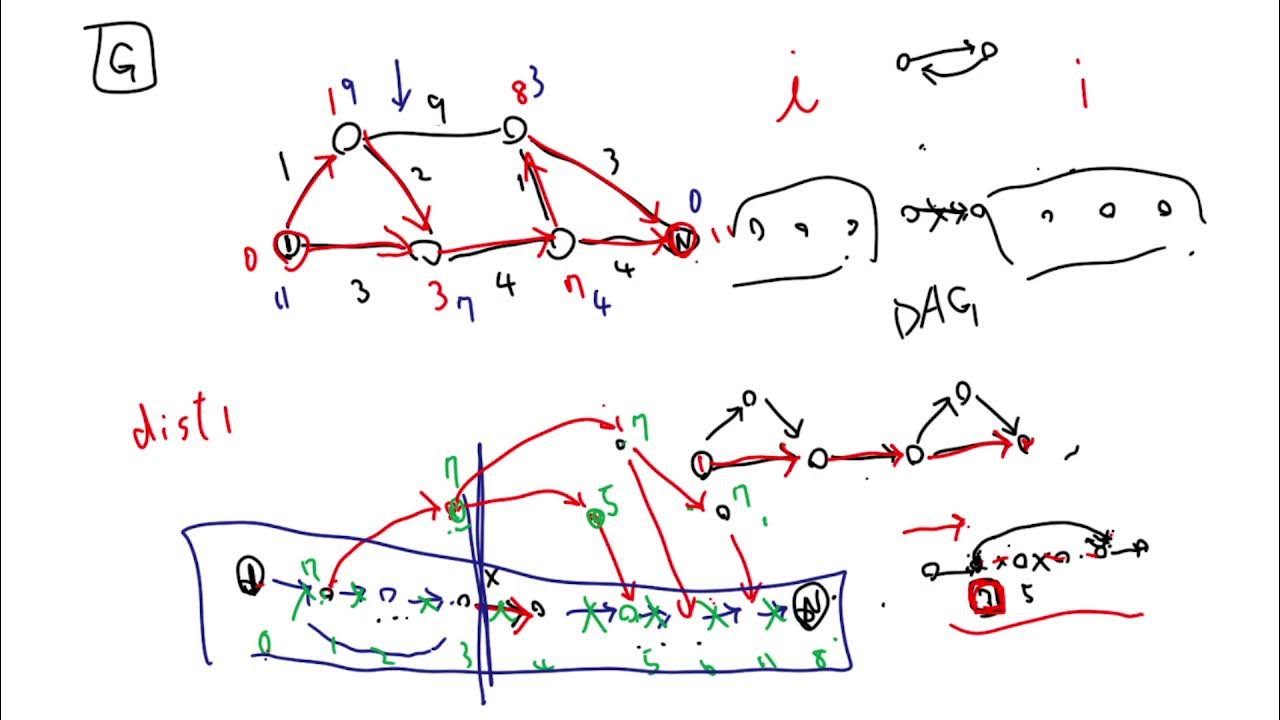 G
19 9 83
1 2 1 3 i i
0 0
1 N 11
11 3 3 7 4 7 4 4
DAG
dist1
7 7
1
7 5 7
7 5
1 7 x N
0 1 2 3 4 5 6 11 8